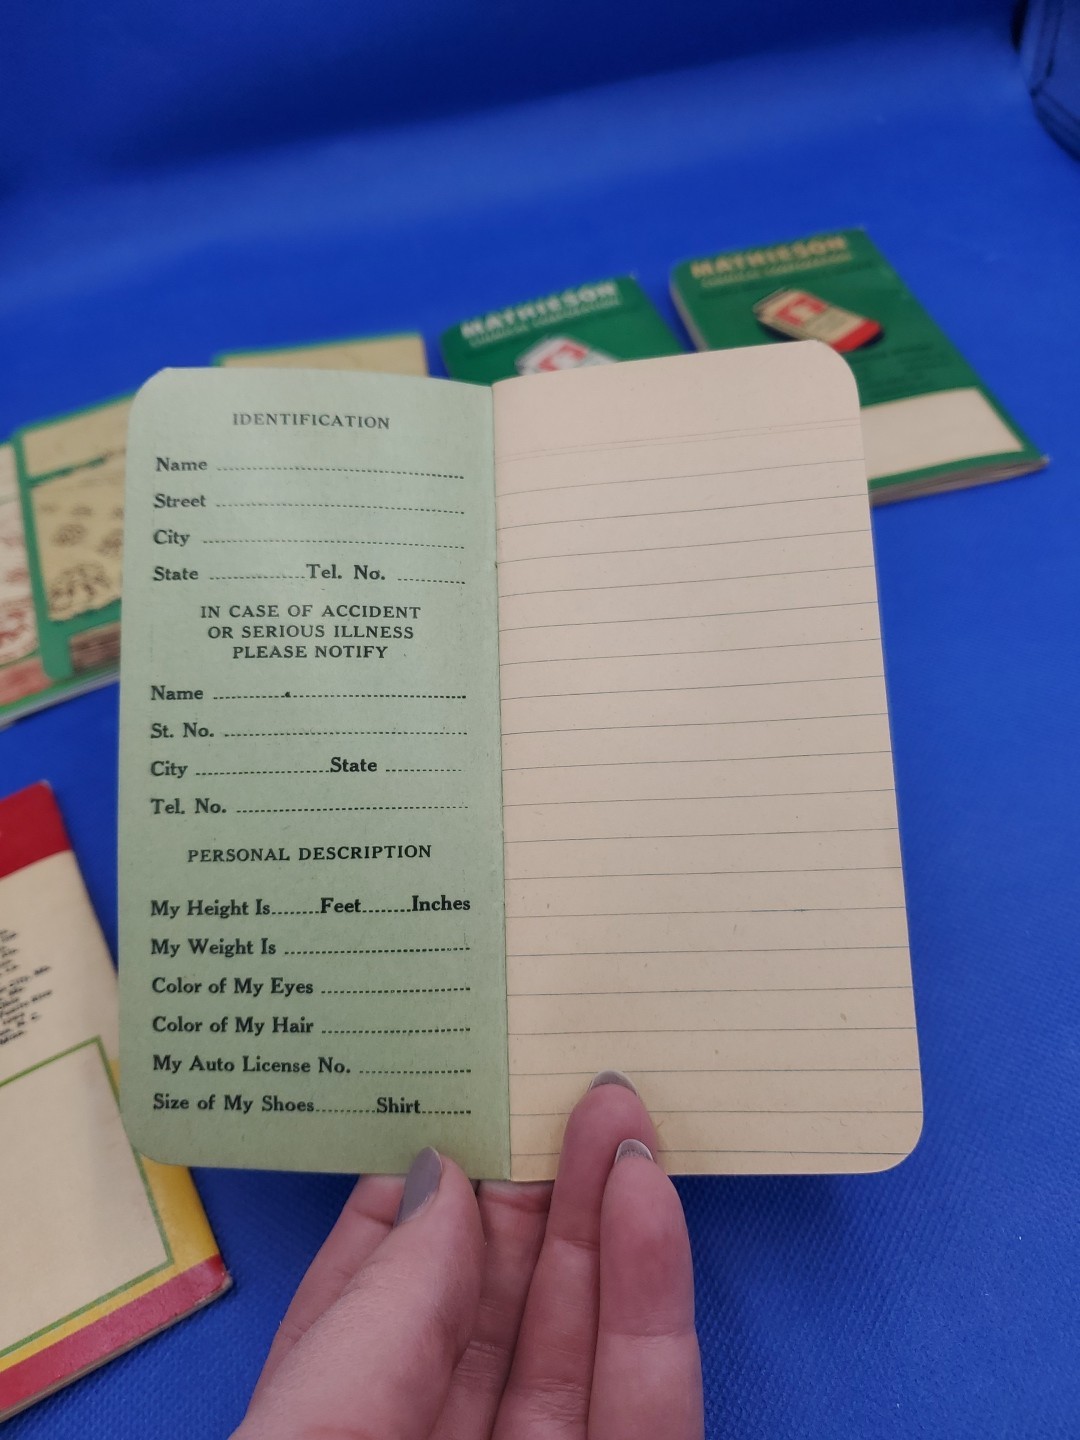 MATHIESON
MATHIESON
IDENTIFICATION
Name
Street
City
State Tel. No.
IN CASE OF ACCIDENT
OR SERIOUS ILLNESS
PLEASE NOTIFY
Name
St. No.
City State
Tel. No.
PERSONAL DESCRIPTION
My Height Is Feet Inches
My Weight Is
Color of My Eyes
Color of My Hair
My Auto License No.
Size of My Shoes Shirt